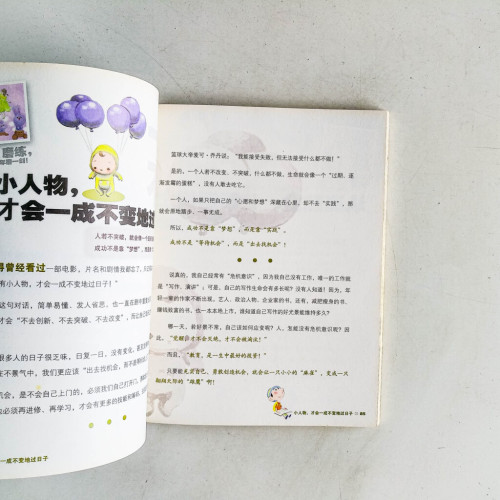 磨练，
小人物，
才会一成不变地过
人若不突破，就会像一个
成功不是靠“梦想”，
得曾经看过一部电影，片名和剧情我都忘了，
小人物，才会一成不变地过日子！”
这句对话，简单易懂、发人省思，也一直在
才会“不去创新、不去突破、不去改变”，
很多人的日子很乏味，日复一日，没有变化，
在不景气中，我们更应该“出去找机会，
机会，是不会自己上门的，必须我们自己打开门，
必须再进修、再学习，才会有更多的技能和
一成不变地过日子
篮球大帝麦可·乔丹说：“我能接受失败，但无法接受什么都不做！”
是的，一个人若不改变、不突破，什么都不做，生命就会像一个“过期、逐
渐发霉的蛋糕”，没有人敢去吃它。
一个人，如果只把自己的“心愿和梦想”深藏在心里，却不去“实践”，那
就会原地踏步、一事无成。
所以，成功不是靠“梦想”，而是靠“实践”。
成功不是“等待机会”，而是“出去找机会”！
说真的，我自己经常有“危机意识”，因为我自己没有工作，唯一的工作就
是“写作、演讲”；可是，自己的写作生命会有多长呢？没有人知道！因为，年
轻一辈的作家不断出现，艺人、政治人物、企业家的书，还有，减肥瘦身的书、
赚钱致富的书，也一本本地上市，谁知道自己写作的好光景能维持多久？
哪一天，裁好要不来，自己该如何应变呢？人，岂能没有危机意识呢？因
此，“觉醒自才不会灭绝，才不会被淘汰！”
而说，“教育，是一生中最好的投资！”
只要能充实自己、勇敢创造机会，就会让一只小小的“麻雀”，变成一只
翱翔天际的“雄鹰”啊！
小人物，才会一成不变地过日子